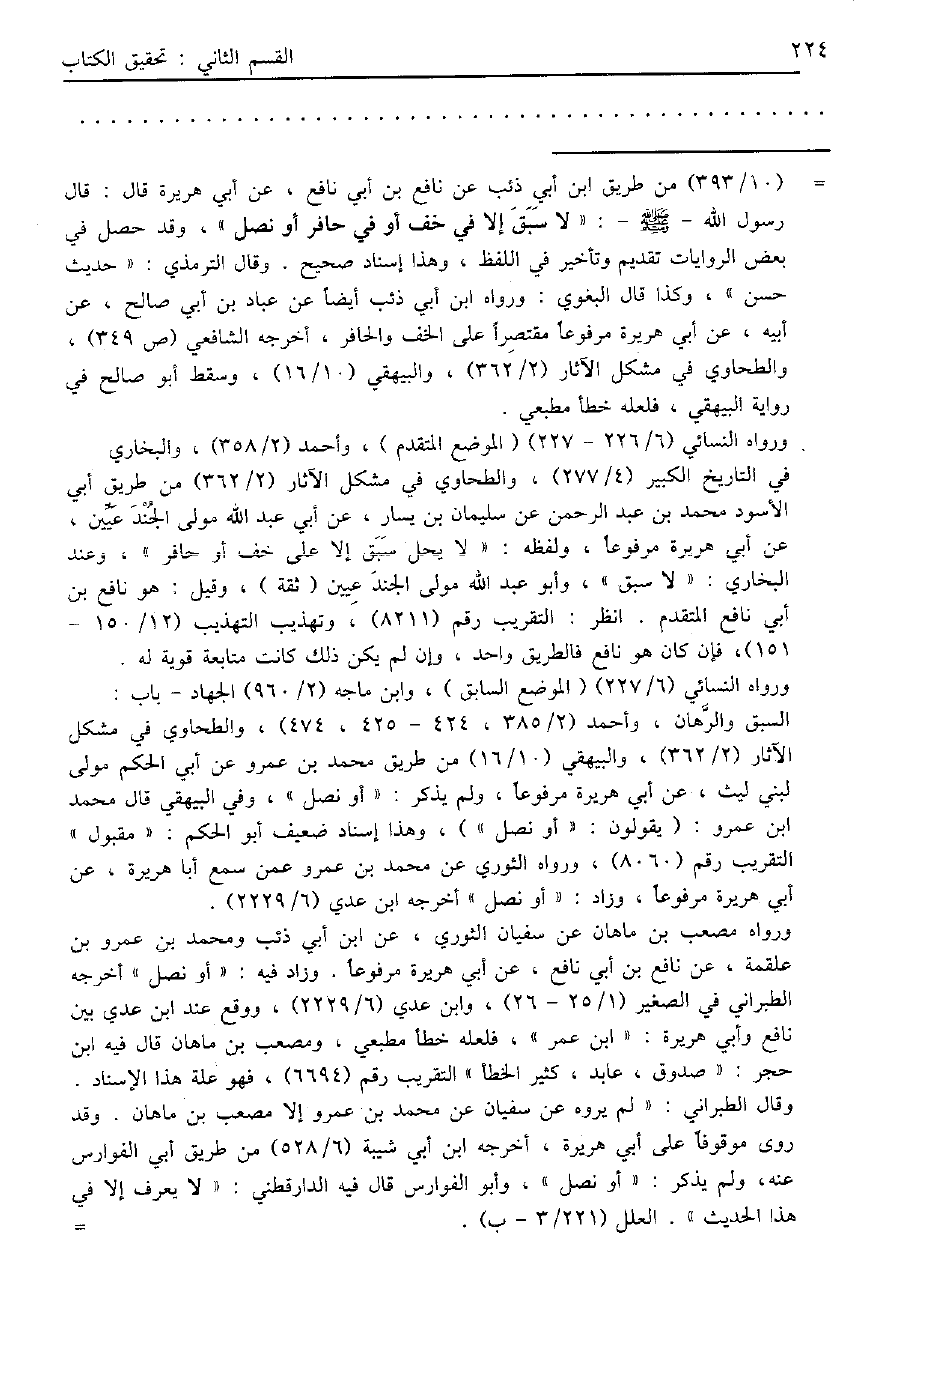 ٢٢٤
القسم الثاني : تحقيق الكتاب
. . . . . . . . . . . . . . . . . . . . . . . . . . . . . . . . . . . . . . . . . . . . .
= (٣٩٣/١٠) من طريق ابن أبي ذئب عن نافع بن أبي نافع ، عن أبي هريرة قال : قال
رسول الله - ﷺ - : « لا سَبَقَ إلا في خف أو في حافر أو نصل » ، وقد حصل في
بعض الروايات تقديم وتأخير في اللفظ ، وهذا إسناد صحيح . وقال الترمذي : « حديث
حسن » ، وكذا قال البغوي : ورواه ابن أبي ذئب أيضاً عن عباد بن أبي صالح ، عن
أبيه ، عن أبي هريرة مرفوعاً مقتصِراً على الخف والحافر ، أخرجه الشافعي (ص ٣٤٩) ،
والطحاوي في مشكل الآثار (٣٦٢/٢) ، والبيهقي (١٦/١٠) ، وسقط أبو صالح في
رواية البيهقي ، فلعله خطأ مطبعي .
ورواه النسائي (٢٢٦/٦ - ٢٢٧) ( الموضع المتقدم ) ، وأحمد (٣٥٨/٢) ، والبخاري
في التاريخ الكبير (٢٧٧/٤) ، والطحاوي في مشكل الآثار (٣٦٢/٢) من طريق أبي
الأسود محمد بن عبد الرحمن عن سليمان بن يسار ، عن أبي عبد الله مولى الجُنْدَ عِيّين ،
عن أبي هريرة مرفوعاً ، ولفظه : « لا يحل سَبَق إلا على خف أو حافر » ، وعند
البخاري : « لا سبق » ، وأبو عبد الله مولى الجندَ عِيين ( ثقة ) ، وقيل : هو نافع بن
أبي نافع المتقدم . انظر : التقريب رقم (٨٢١١) ، وتهذيب التهذيب (١٥٠/١٢ -
١٥١)، فإن كان هو نافع فالطريق واحد ، وإن لم يكن ذلك كانت متابعة قوية له .
ورواه النسائي (٢٢٧/٦) ( الموضع السابق ) ، وابن ماجه (٩٦٠/٢) الجهاد - باب :
السبق والرَّهان ، وأحمد (٣٨٥/٢ ، ٤٢٤ - ٤٢٥ ، ٤٧٤) ، والطحاوي في مشكل
الآثار (٣٦٢/٢) ، والبيهقي (١٦/١٠) من طريق محمد بن عمرو عن أبي الحكم مولى
لبني ليث ، عن أبي هريرة مرفوعاً ، ولم يذكر : « أو نصل » ، وفي البيهقي قال محمد
ابن عمرو : ( يقولون : « أو نصل » ) ، وهذا إسناد ضعيف أبو الحكم : « مقبول »
التقريب رقم (٨٠٦٠) ، ورواه الثوري عن محمد بن عمرو عمن سمع أبا هريرة ، عن
أبي هريرة مرفوعاً ، وزاد : « أو نصل » أخرجه ابن عدي (٢٢٢٩/٦) .
ورواه مصعب بن ماهان عن سفيان الثوري ، عن ابن أبي ذئب ومحمد بن عمرو بن
علقمة ، عن نافع بن أبي نافع ، عن أبي هريرة مرفوعاً . وزاد فيه : « أو نصل » أخرجه
الطبراني في الصغير (٢٥/١ - ٢٦) ، وابن عدي (٢٢٢٩/٦) ، ووقع عند ابن عدي بين
نافع وأبي هريرة : « ابن عمر » ، فلعله خطأ مطبعي ، ومصعب بن ماهان قال فيه ابن
حجر : « صدوق ، عابد ، كثير الخطأ » التقريب رقم (٦٦٩٤) ، فهو علة هذا الإسناد .
وقال الطبراني : « لم يروه عن سفيان عن محمد بن عمرو إلا مصعب بن ماهان . وقد
روى موقوفاً على أبي هريرة ، أخرجه ابن أبي شيبة (٥٢٨/٦) من طريق أبي الفوارس
عنه، ولم يذكر : « أو نصل » ، وأبو الفوارس قال فيه الدارقطني : « لا يعرف إلا في
هذا الحديث » . العلل (٣/٢٢١ - ب) .
=